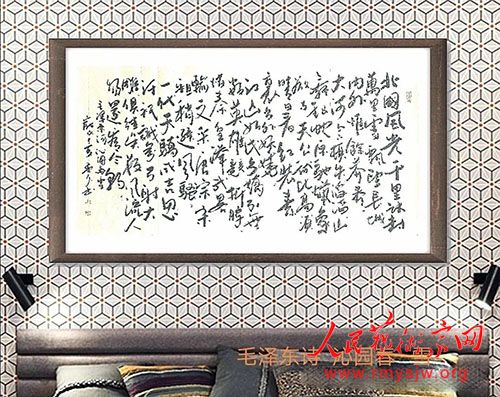 北國風光千里冰封
萬里雪飄望長城
内外惟餘莽莽
大河上下頓失滔滔山
舞銀蛇原馳蠟象
欲與天公試比高須
晴日看红装素
裹分外妖嬈
江山如此多嬌引無
數英雄競折腰
惜秦皇漢武略
輸文采唐宗宋
祖稍遜風騷
一代天驕成吉思
汗只識彎弓射大
雕俱往矣數風流人
物還看今朝
毛澤東詞沁園春雪
毛泽东诗 沁园春 雪
人民艺术家网
www.rmyajw.org